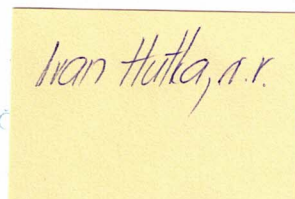 Ivan Hutka, n.r.